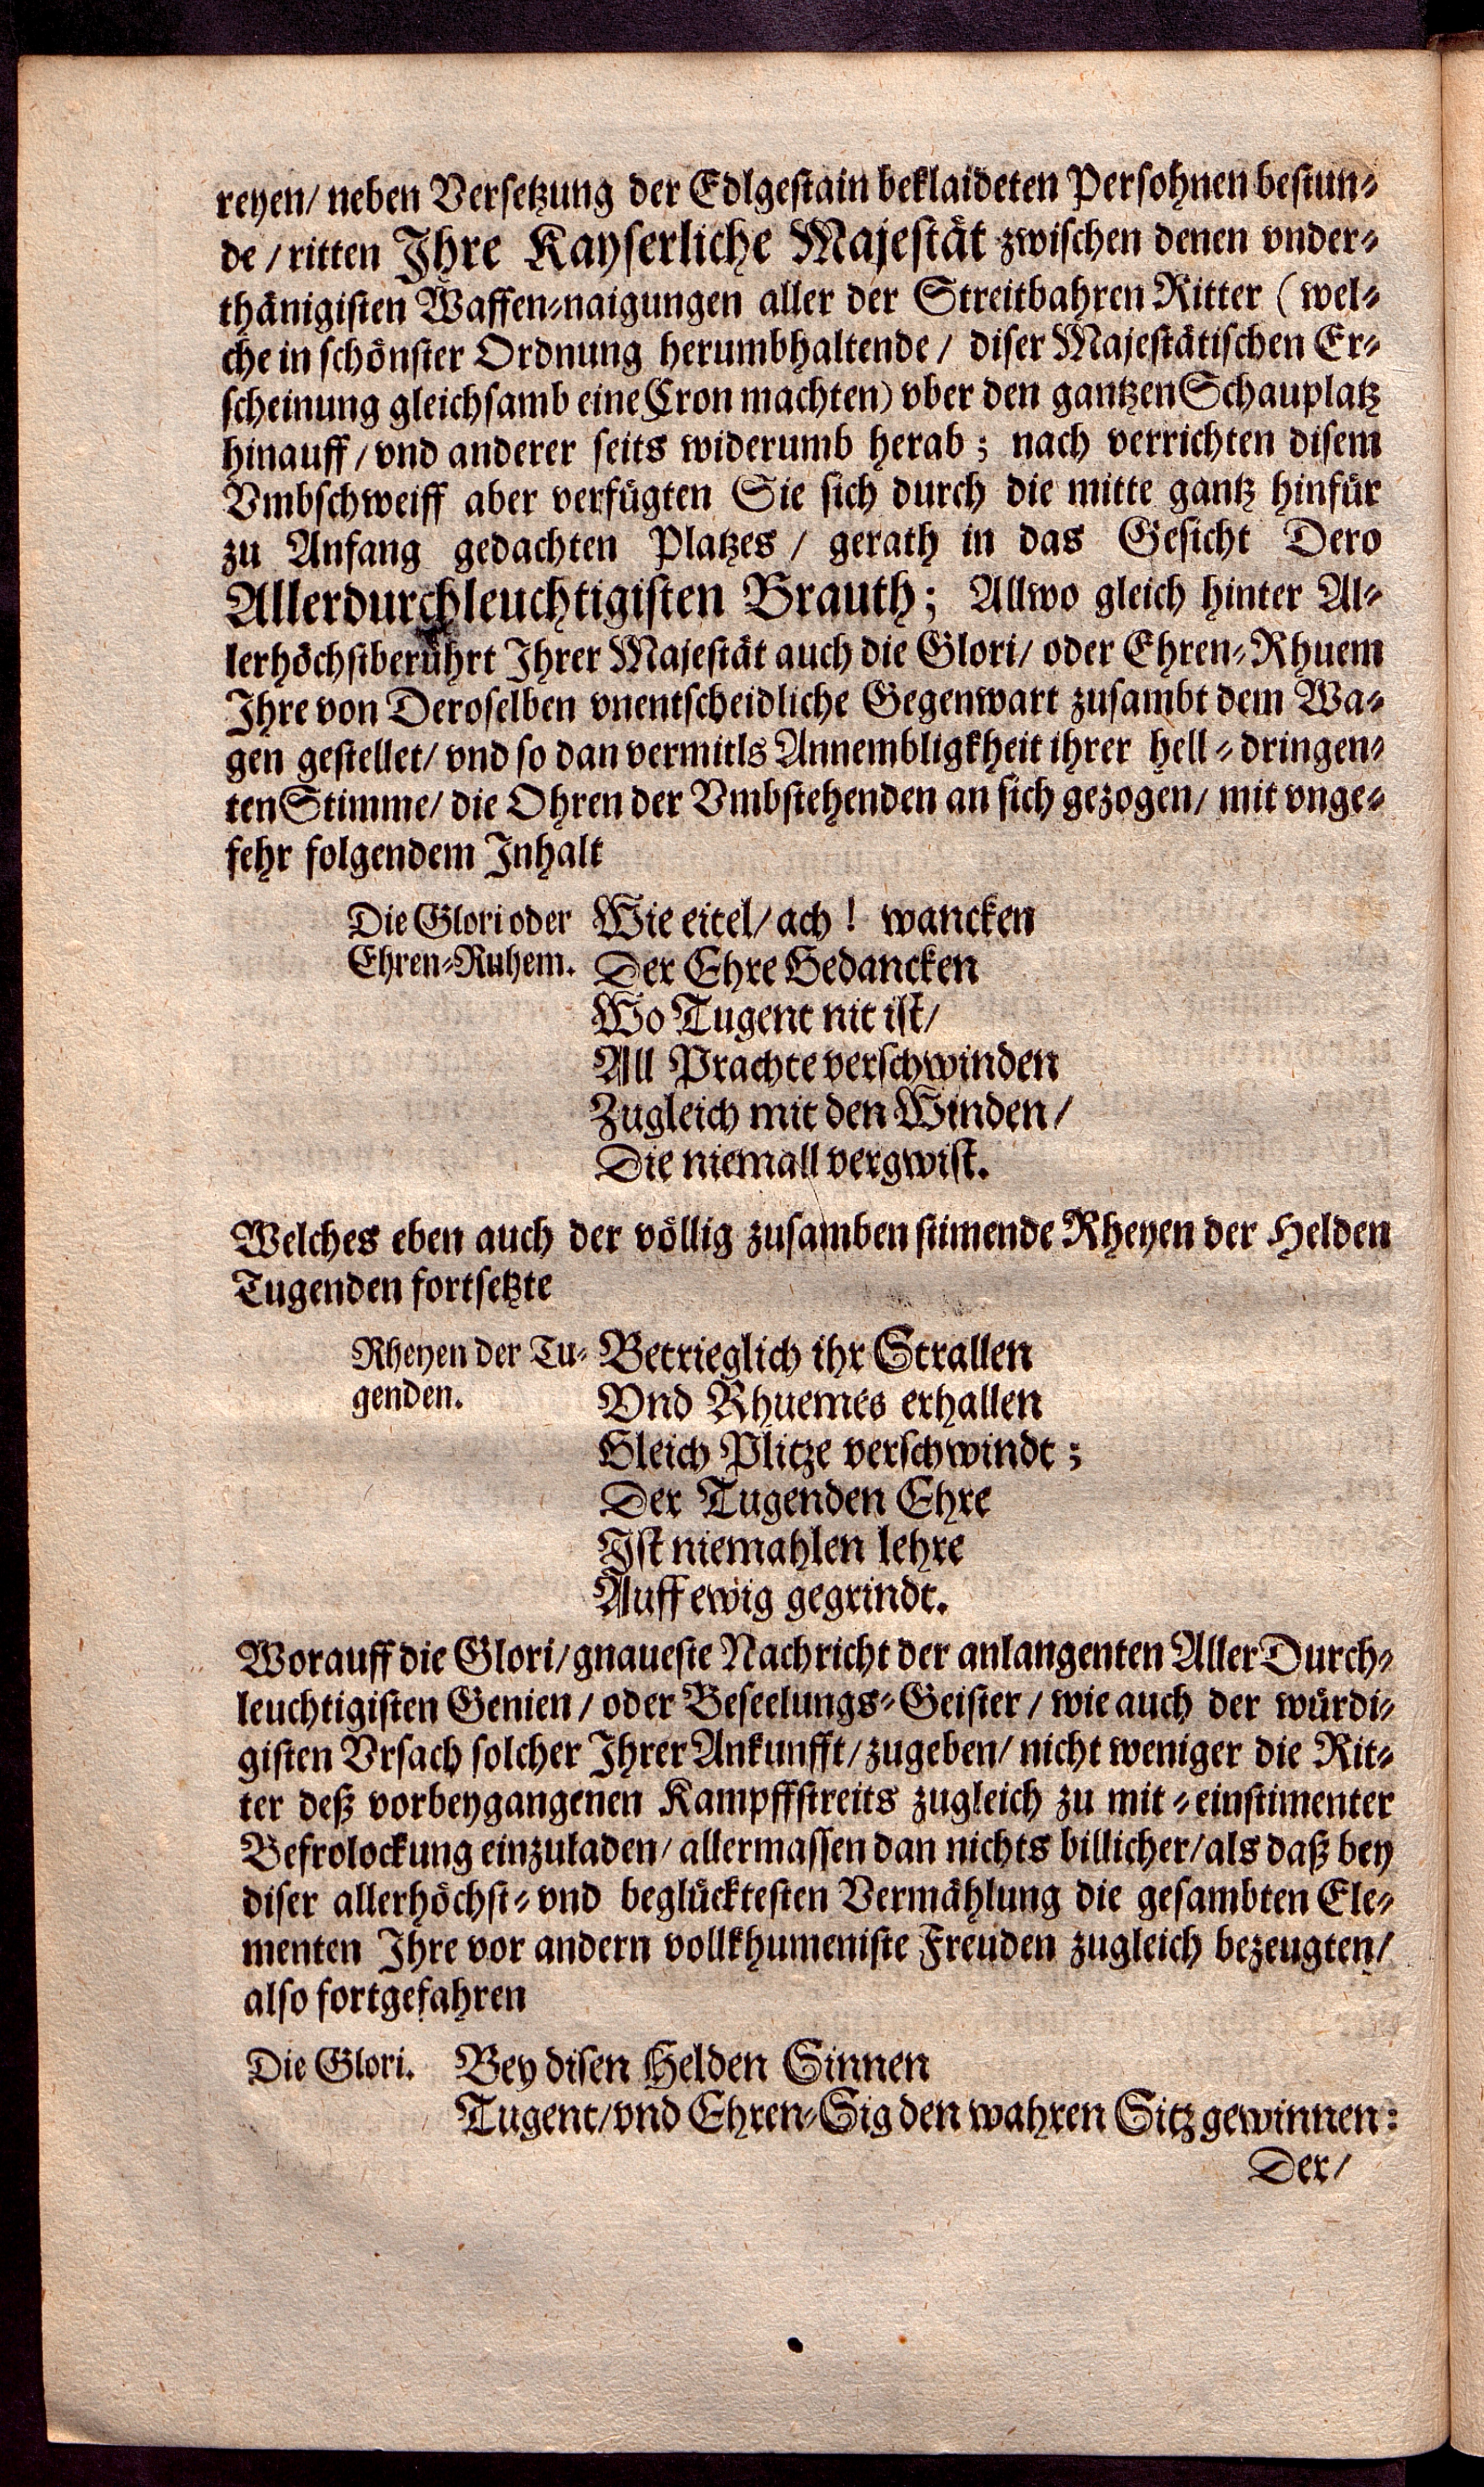 reyen/ neben Versetzung der Edlgestain beklaideten Persohnen bestun-
de / ritten Ihre Kayserliche Majestät zwischen denen vnder-
thänigisten Waffen-naigungen aller der Streitbahren Ritter ( wel-
che in schönster Ordnung herumbhaltende / diser Majestätischen Er-
scheinung gleichsamb eine Cron machten) vber den gantzen Schauplatz
hinauff / vnd anderer seits widerumb herab; nach verrichten disem
Vmbschweiff aber verfügten Sie sich durch die mitte gantz hinfür
zu Anfang gedachten Platzes / gerath in das Gesicht Dero
Allerdurchleuchtigisten Brauth; Allwo gleich hinter Al-
lerhöchstberührt Ihrer Majestät auch die Glori/ oder Ehren-Rhuem
Ihre von Deroselben vnentscheidliche Gegenwart zusambt dem Wa-
gen gestellet/ vnd so dan vermitls Annembligkheit ihrer hell-dringen-
ten Stimme/ die Ohren der Vmbstehenden an sich gezogen/ mit vnge-
fehr folgendem Inhalt
Die Glori oder Wie eitel/ ach ! wancken
Ehren-Ruhem. Der Ehre Gedancken
Wo Tugent nit ist/
All Prachte verschwinden
Zugleich mit den Winden /
Die niemall vergwist.
Welches eben auch der völlig zusamben stimende Rheyen der Helden
Tugenden fortsetzte
Rheyen der Tu- Betrieglich ihr Strallen
genden. Vnd Rhuemes erhallen
Gleich Plitze verschwindt ;
Der Tugenden Ehre
Ist niemahlen lehre
Auff ewig gegrindt.
Worauff die Glori/ gnaueste Nachricht der anlangenten Aller Durch-
leuchtigisten Genien / oder Beseelungs-Geister / wie auch der würdi-
gisten Vrsach solcher Ihrer Ankunfft / zugeben/ nicht weniger die Rit-
ter deß vorbeygangenen Kampffstreits zugleich zu mit-einstimenter
Befrolockung einzuladen/ allermassen dan nichts billicher/ als daß bey
diser allerhöchst- vnd beglücktesten Vermählung die gesambten Ele-
menten Ihre vor andern vollkhumeniste Freuden zugleich bezeugten/
also fortgefahren
Die Glori. Bey disen Helden Sinnen
Tugent/ vnd Ehren-Sig den wahren Sitz gewinnen:
Der/